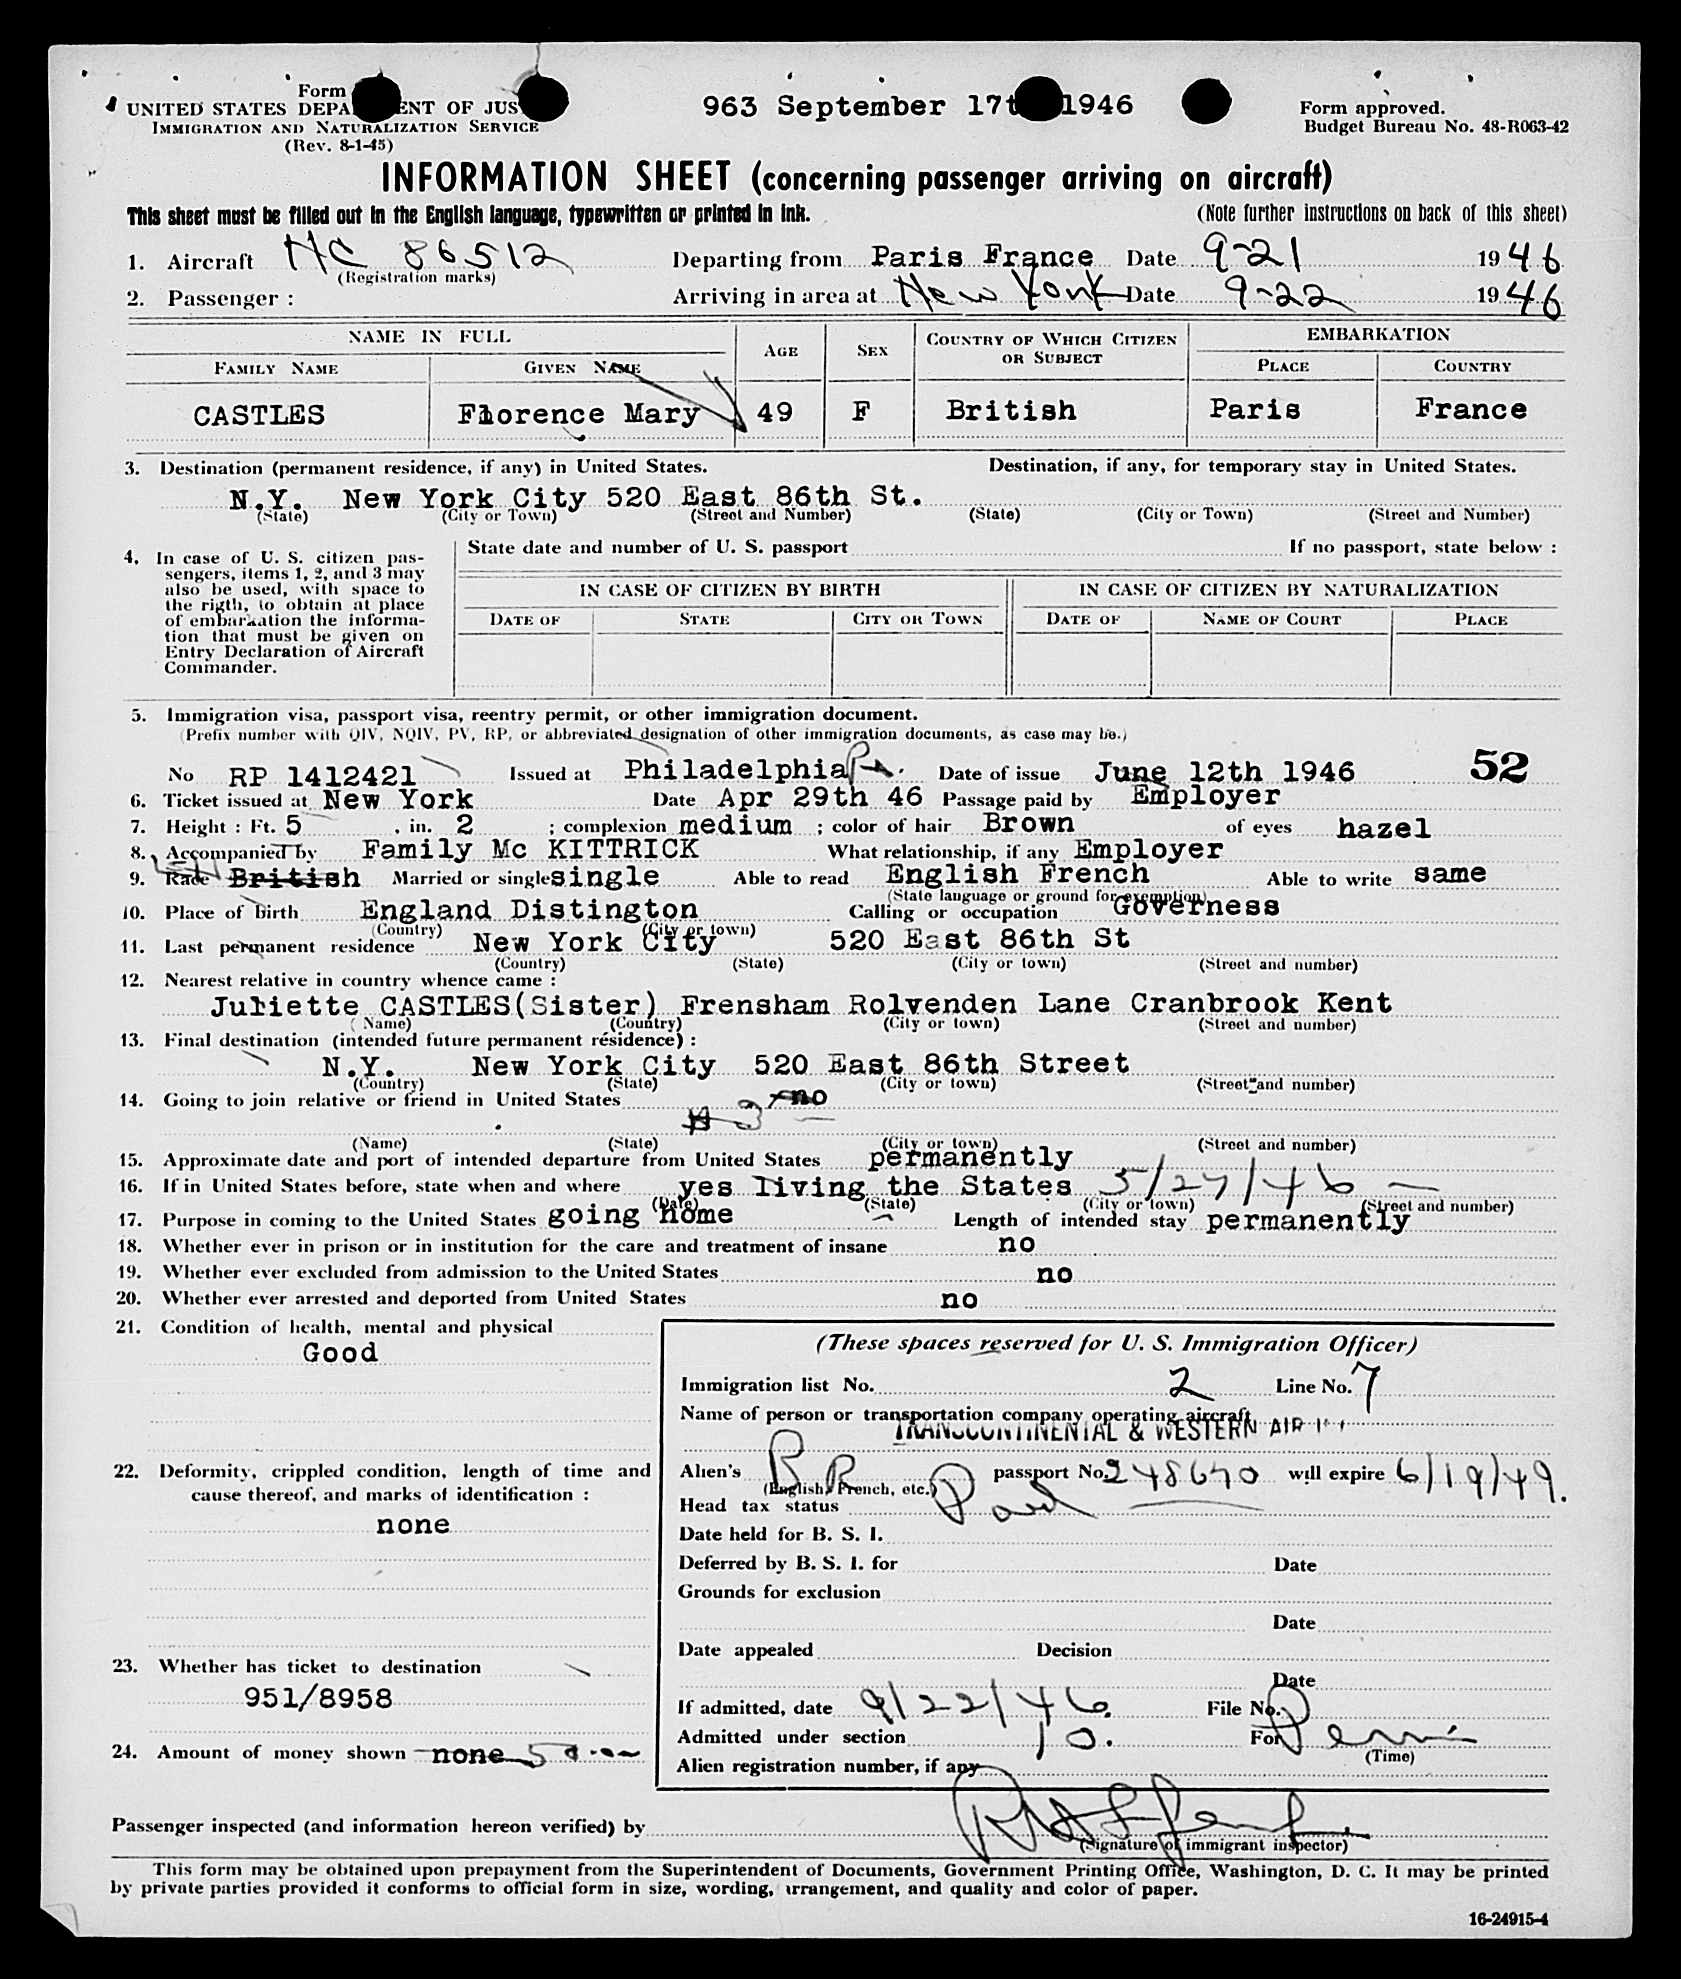 Form
UNITED STATES DEPA ENT OF JUS
IMMIGRATION AND NATURALIZATION SERVICE
(Rev. 8-1-45)
963 September 17t 1946
Form approved.
Budget Bureau No. 48-R063-42
INFORMATION SHEET (concerning passenger arriving on aircraft)
This sheet must be filled out in the English language, typewritten or printed in ink.
(Note further instructions on back of this sheet)
1. Aircraft NC 86512 Departing from Paris France Date 9-21 1946
(Registration marks)
2. Passenger : Arriving in area at New York Date 9-22 1946
NAME IN FULL AGE SEX COUNTRY OF WHICH CITIZEN OR SUBJECT EMBARKATION
FAMILY NAME GIVEN NAME PLACE COUNTRY
CASTLES Florence Mary 49 F British Paris France
3. Destination (permanent residence, if any) in United States. Destination, if any, for temporary stay in United States.
N.Y. New York City 520 East 86th St.
(State) (City or Town) (Street and Number) (State) (City or Town) (Street and Number)
4. In case of U. S. citizen pas-
sengers, items 1, 2, and 3 may
also be used, with space to
the rigth, to obtain at place
of embarkation the informa-
tion that must be given on
Entry Declaration of Aircraft
Commander.
State date and number of U. S. passport If no passport, state below :
IN CASE OF CITIZEN BY BIRTH IN CASE OF CITIZEN BY NATURALIZATION
DATE OF STATE CITY OR TOWN DATE OF NAME OF COURT PLACE
5. Immigration visa, passport visa, reentry permit, or other immigration document.
(Prefix number with QIV, NQIV, PV, RP, or abbreviated designation of other immigration documents, as case may be.)
No RP 1412421 Issued at Philadelphia Pa. Date of issue June 12th 1946 52
6. Ticket issued at New York Date Apr 29th 46 Passage paid by Employer
7. Height : Ft. 5 , in. 2 ; complexion medium ; color of hair Brown of eyes hazel
8. Accompanied by Family Mc KITTRICK What relationship, if any Employer
9. Race British Married or single single Able to read English French Able to write same
(State language or ground for exemption)
10. Place of birth England Distington Calling or occupation Governess
(Country) (City or town)
11. Last permanent residence New York City 520 East 86th St
(Country) (State) (City or town) (Street and number)
12. Nearest relative in country whence came :
Juliette CASTLES(Sister) Frensham Rolvenden Lane Cranbrook Kent
(Name) (Country) (City or town) (Street and number)
13. Final destination (intended future permanent résidence) :
N.Y. New York City 520 East 86th Street
(Country) (State) (City or town) (Street and number)
14. Going to join relative or friend in United States no
(Name) (State) (City or town) (Street and number)
15. Approximate date and port of intended departure from United States permanently
16. If in United States before, state when and where yes living the States 5/27/46
(Date) (State) (City or town) (Street and number)
17. Purpose in coming to the United States going home Length of intended stay permanently
18. Whether ever in prison or in institution for the care and treatment of insane no
19. Whether ever excluded from admission to the United States no
20. Whether ever arrested and deported from United States no
21. Condition of health, mental and physical
Good
22. Deformity, crippled condition, length of time and
cause thereof, and marks of identification :
none
23. Whether has ticket to destination
951/8958
24. Amount of money shown none
(These spaces reserved for U. S. Immigration Officer)
Immigration list No. 2 Line No. 7
Name of person or transportation company operating aircraft
TRANSCONTINENTAL & WESTERN AIR
Alien's BR passport No. 248640 will expire 6/19/49.
(English, French, etc.)
Head tax status Paid
Date held for B. S. I.
Deferred by B. S. I. for Date
Grounds for exclusion
Date
Date appealed Decision
Date
If admitted, date 9/22/46. File No.
Admitted under section 10. For
(Time)
Alien registration number, if any
Passenger inspected (and information hereon verified) by
(Signature of immigrant inspector)
This form may be obtained upon prepayment from the Superintendent of Documents, Government Printing Office, Washington, D. C. It may be printed
by private parties provided it conforms to official form in size, wording, arrangement, and quality and color of paper.
16-24915-4